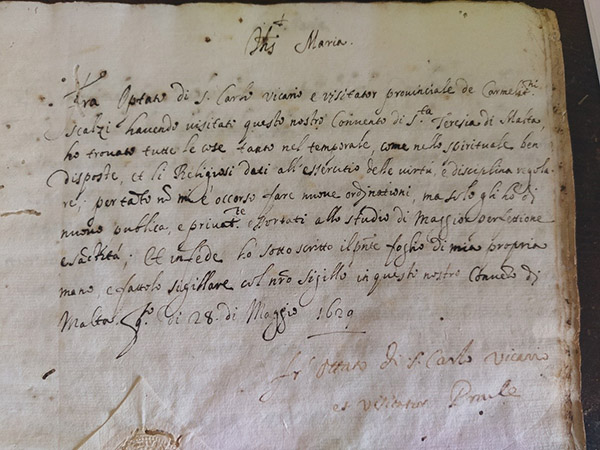 Jhs Maria.
Fra Optato di S. Carlo Vicario e visitator provinciale de Carmelitani
scalzi havendo visitato questo nostro Convento di S.ta Teresia di Malta,
ho trovato tutte le cose tanto nel temporale, come nello spirituale ben
disposte, et li Religiosi dati all'essercitio delle virtu, e disciplina regola-
re; pertanto nõ mi è occorso fare nuove ordinationi, ma solo gli ho di
nuovo publica, e privat.te essortati allo studio di Maggior perfettione
e sãctità; Et in fede ho sottoscritto il pñte foglio di mia propria
mano, e fattolo sugillare col nr̃o sigillo in questo nostro Convẽto di
Malta. di 28. di Maggio 1629
fr' Ottato di S. Carlo Vicario
et Visitator Prõle